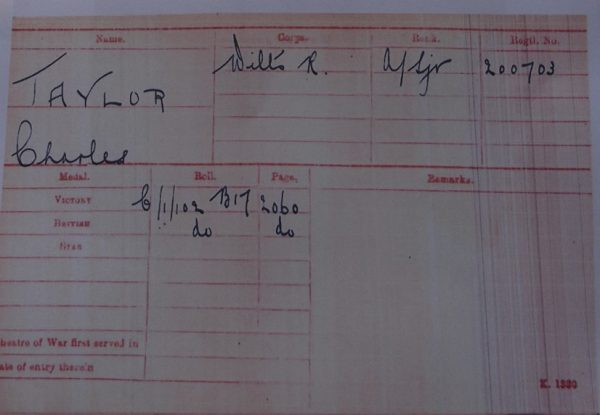 Name. Corps. Rank. Regtl. No.
TAYLOR Wilts R. A/Sjt 200703
Charles
Medal. Roll. Page. Remarks.
VICTORY C/1/102 B17 2060
BRITISH do do
STAR
Theatre of War first served in
Date of entry therein
K. 1380